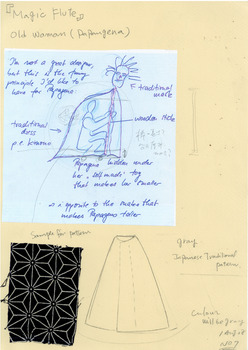 『Magic Flute』
Old woman (Papagena)
I'm not a good drawer,
but this is the funny
principle I'd like to
have for Papagena
F traditional
mask
wooden stick
traditional
dress
p.e. kimono
Papageno hidden under
her "self made" toy
that makes her smaller
→ opposite to the
that
makes Papageno taller
Sample for pattern
gray
Japanese Traditional
pattern
Colour
will be gray